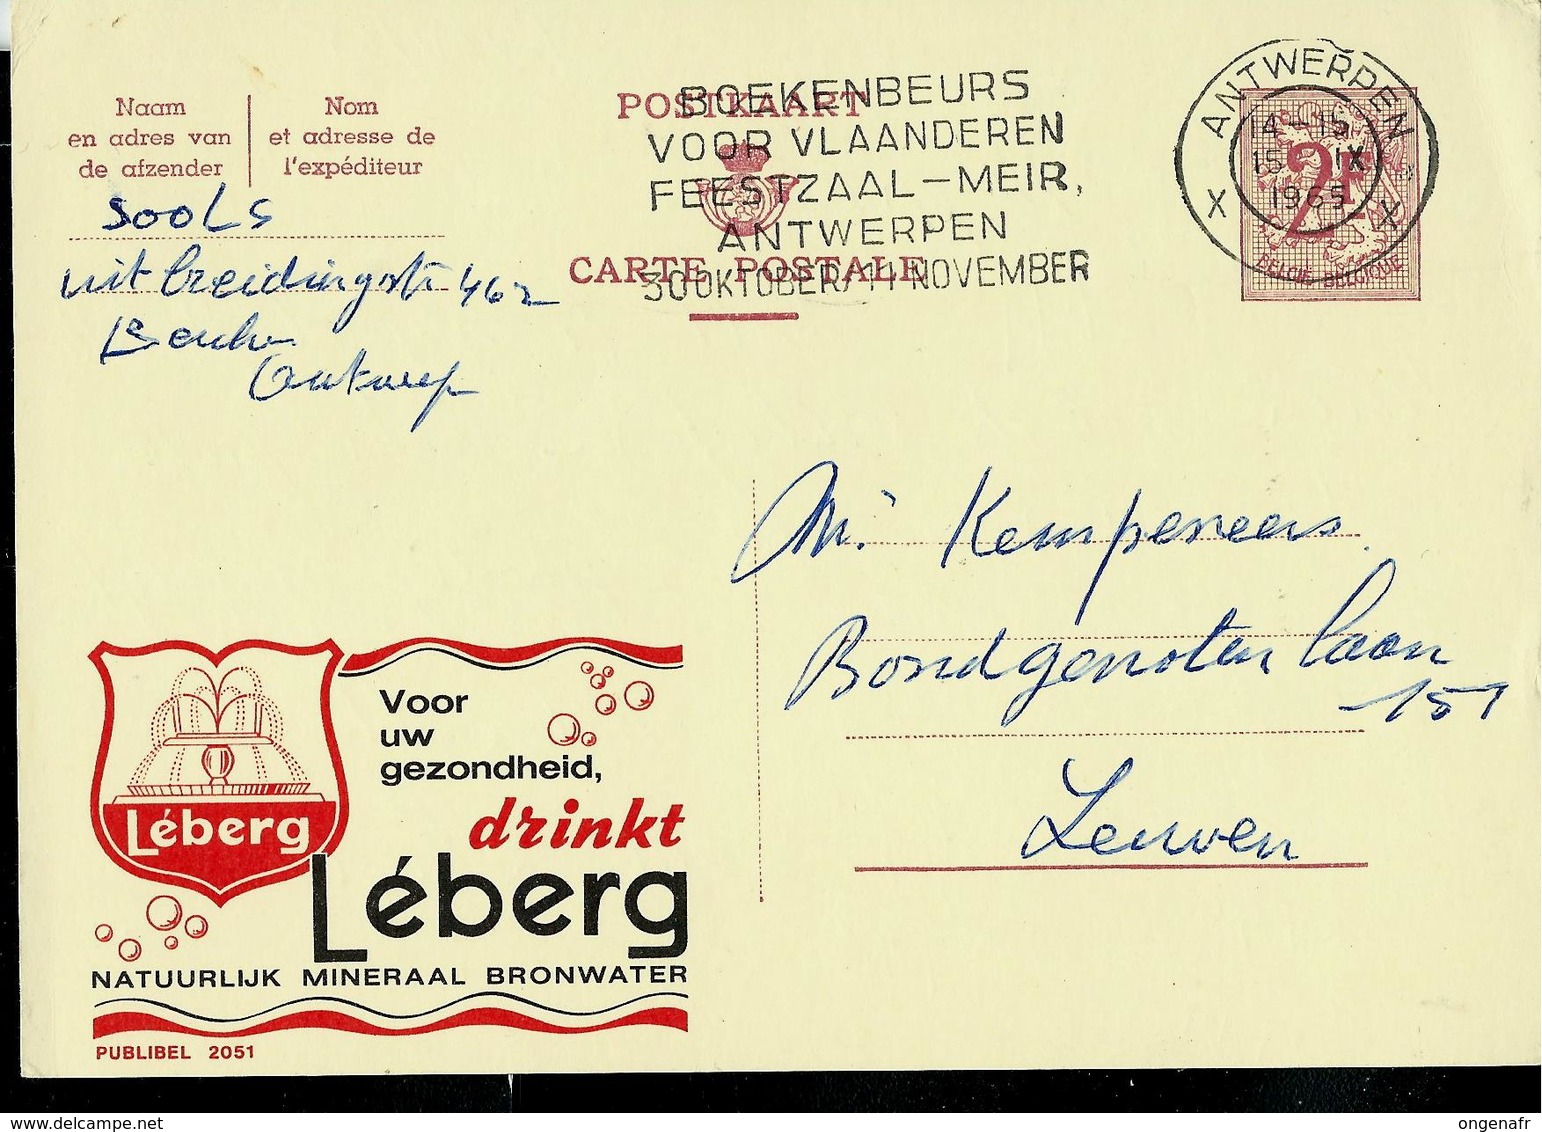 Naam
en adres van
de afzender
Nom
et adresse de
l'expéditeur
POSTKAART
CARTE POSTALE
BOEKENBEURS
VOOR VLAANDEREN
FEESTZAAL-MEIR,
ANTWERPEN
30 OKTOBER/14 NOVEMBER
X ANTWERPEN X
14-15
15 IX
1965
2F
BELGIE-BELGIQUE
SOOLS
uitbreidingstr 462
Berchem
Antwerp
Mr. Kempeneers
Bondgenotenlaan
151
Leuven
Voor
uw
gezondheid,
drinkt
Léberg
Léberg
NATUURLIJK MINERAAL BRONWATER
PUBLIBEL 2051
www.delcampe.net
ongenafr